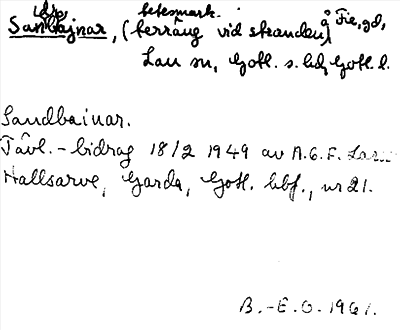 betesmark.
Sandbajnar, (terräng vid stranden) å Fie, gd,
Lau sn, Gotl. s. hd, Gotl. l.
Sandbainar.
Tävl.-bidrag 18/2 1949 av A.G.F.
Hallsarve, Garda, Gotl. bbf., nr 21.
B.-E.O. 1961.